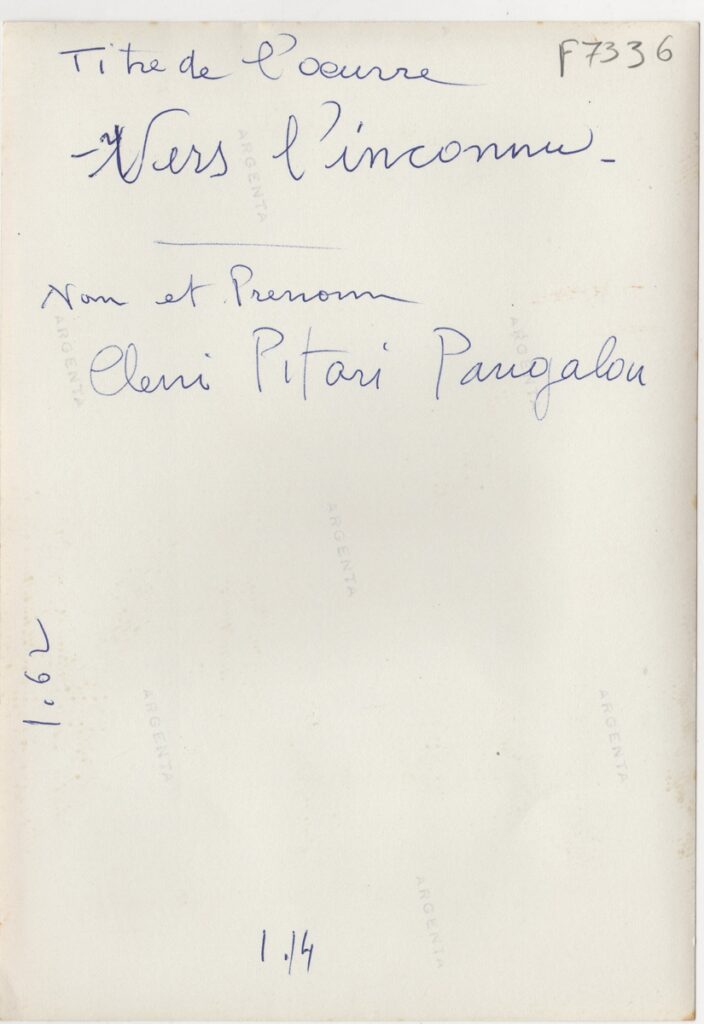 F7336
Titre de l'oeuvre
- Vers l'inconnu -
Nom et Prenom
Eleni Pitari Pangalou
ARGENTA
ARGENTA
ARGENTA
ARGENTA
ARGENTA
ARGENTA
ARGENTA
1.62
1.14